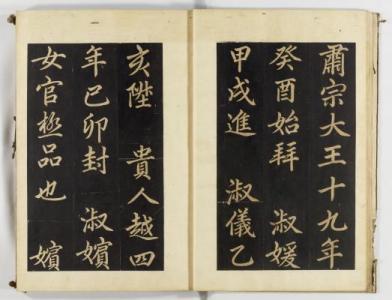 肅宗大王十九年
癸酉始拜 淑媛
甲戌進 淑儀乙
亥陞 貴人越四
年己卯封 淑嬪
女官極品也 嬪